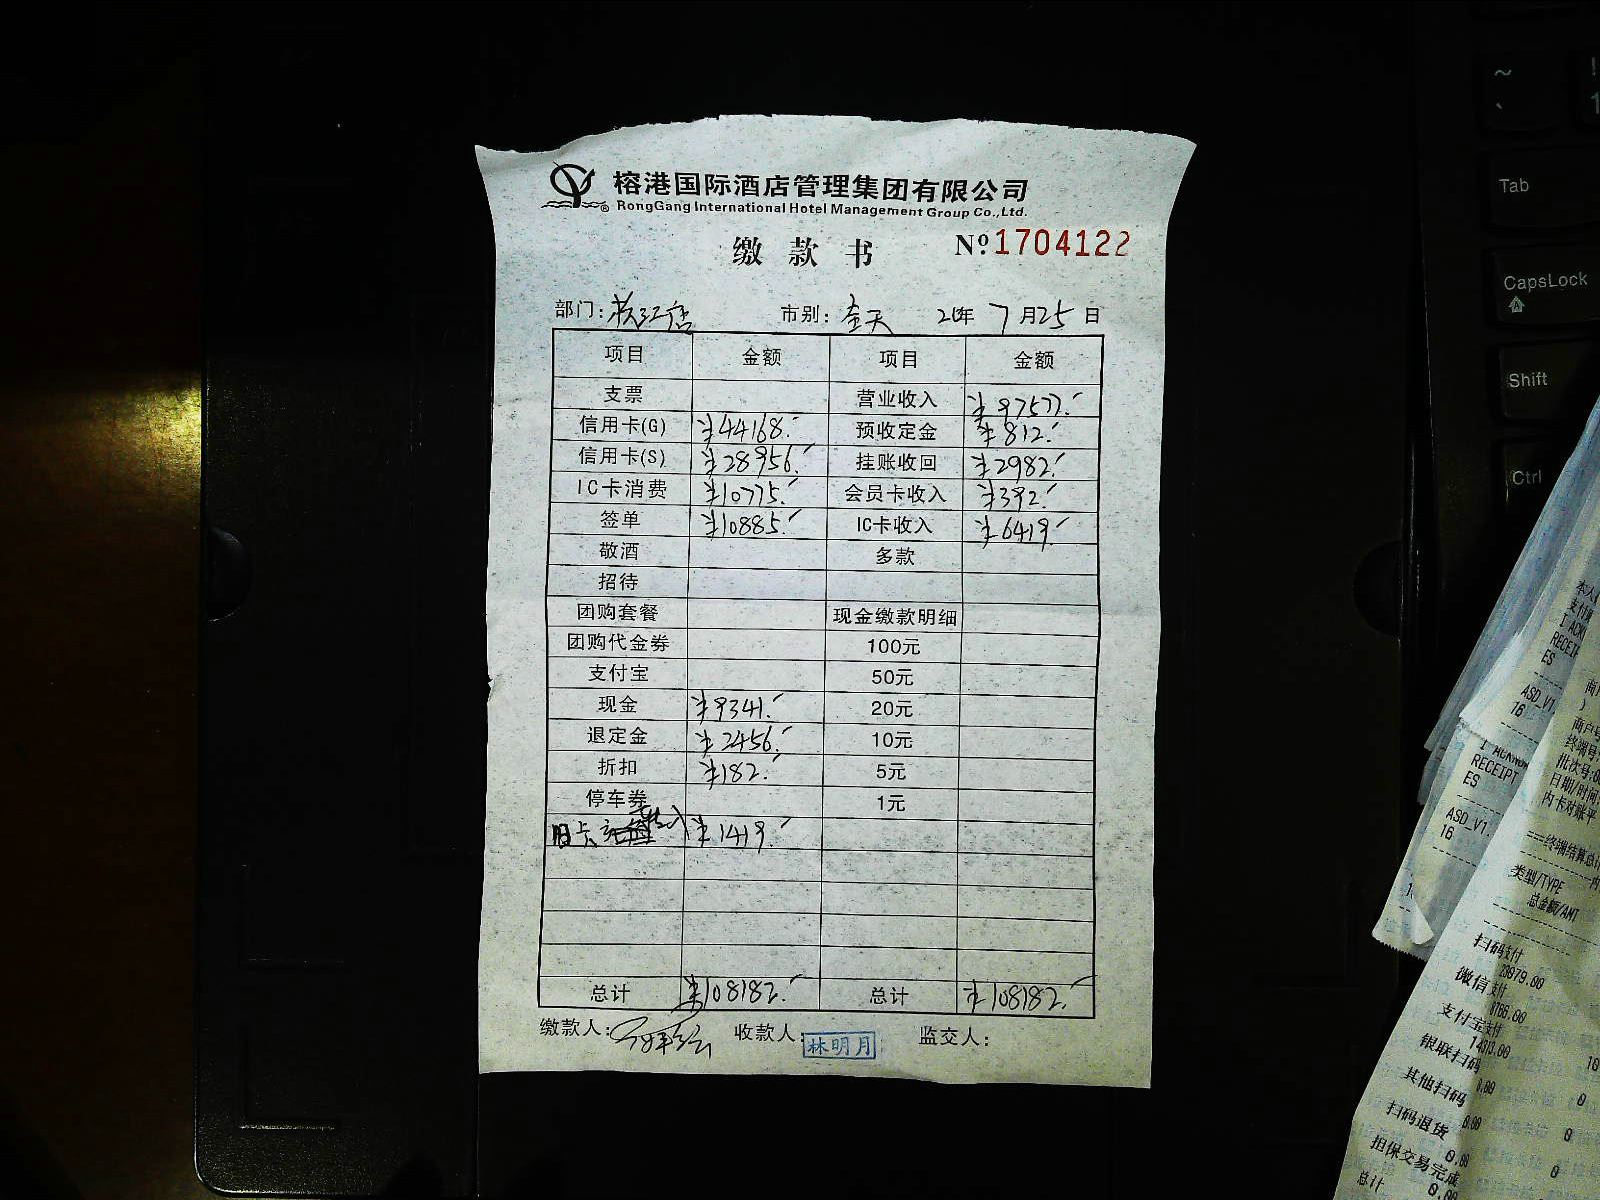 榕港国际酒店管理集团有限公司
RongGang International Hotel Management Group Co.,Ltd.
缴款书 Nº.1704122
部门: 市别: 全天 20年 7月25日
项目 金额 项目 金额
支票 营业收入 ¥97577.
信用卡(G) ¥44168. 预收定金 ¥812.
信用卡(S) ¥28956. 挂账收回 ¥2982.
IC卡消费 ¥10775. 会员卡收入 ¥392.
签单 ¥10885. IC卡收入 ¥6419.
敬酒 多款
招待
团购套餐 现金缴款明细
团购代金券 100元
支付宝 50元
现金 ¥9341. 20元
退定金 ¥2456. 10元
折扣 ¥182. 5元
停车券 1元
旧卡转入 ¥1419.
总计 ¥108182. 总计 ¥108182.
缴款人: 收款人: 林明月 监交人:
~
Tab
CapsLock
Shift
Ctrl
ASD_V1
16
I ACKNOW
RECEIPT
ES
ASD_V1.
16
I ACK
RECEI
ES
终端号
批次号:0
日期/时间
内卡对账平
===终端结算总
类型/TYPE
总金额/AMT
扫码支付
微信支付
支付宝支付
银联扫码 0.00
其他扫码 0.00
扫码退货 0.00
担保交易完成
总计 0.00